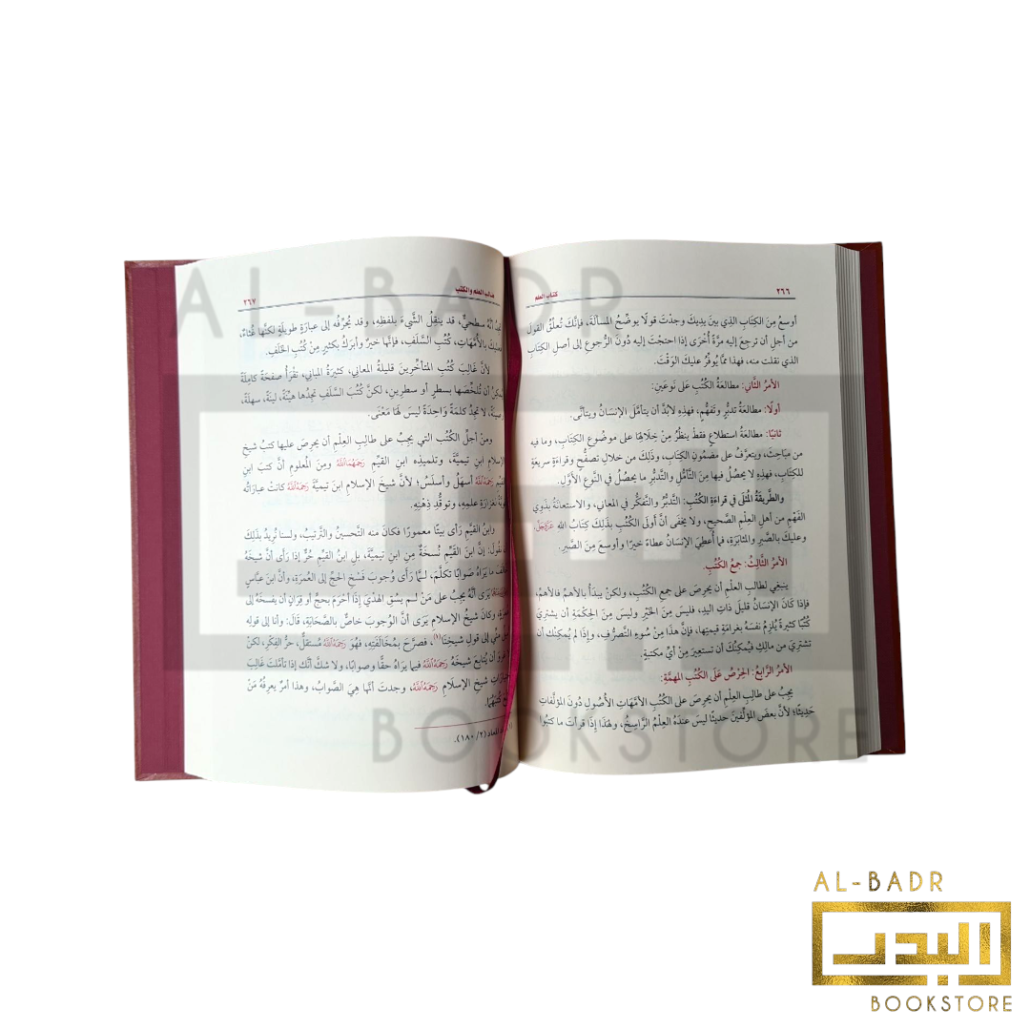 ٢٦٦
كتاب العلم
أوسعُ مِنَ الكِتَابِ الذِي بين يديكَ وجدتَ قولًا يوضِّحُ المسألةَ، فإنَّكَ تُعلِّقُ القولَ
من أجلِ أن ترجعَ إليه مرَّةً أُخرَى إذا احتجتَ إليه دُونَ الرُّجوعِ إلى أصلِ الكِتَابِ
الذي نقلت منه، فهذا ممَّا يُوفِّرُ عليكَ الوَقْتَ.
الأمرُ الثَّاني: مطالعةُ الكُتُبِ على نَوعَينِ:
أولًا: مطالعةُ تدبُّرٍ وتَفهُّمٍ، فهذِهِ لابُدَّ أن يتأمَّلَ الإنسانُ ويتأنَّى.
ثانيًا: مطالعةُ استطلاعٍ فقطْ ينظُرُ مِنْ خِلَالِهَا على موضُوعِ الكِتَابِ، وما فيه
من مَباحِثَ، ويتعرَّفُ على مَضمُونِ الكِتابِ، وذَلِكَ من خلالِ تَصفُّحٍ وقراءةٍ سريعةٍ
للكِتابِ، فهذِهِ لا يحصُلُ فيها مِنَ التَّأمُّلِ والتَّدبُّرِ ما يحصُلُ في النَّوعِ الأوَّلِ.
والطَّريقَةُ المُثلَى في قراءةِ الكُتُبِ: التَّدبُّرُ والتَّفكُّر في المعاني، والاستعانةُ بذَوِي
الفَهْمِ من أهلِ العِلْمِ الصَّحيحِ، ولا يخفَى أنَّ أولَى الكُتُبِ بذَلِكَ كتابُ اللهِ عَزَّوَجَلَّ،
وعليكَ بالصَّبرِ والمثابَرةِ، فما أُعطِيَ الإنسانُ عَطاءً خيرًا وأوسعَ مِنَ الصَّبرِ.
الأمرُ الثَّالِثُ: جمعُ الكُتُبِ.
ينبَغِي لطالبِ العلْمِ أن يحرِصَ على جمعِ الكُتُبِ، ولكنْ يبدَأُ بالأهمِّ فالأهمِّ،
فإذا كَانَ الإنسَانُ قليلَ ذاتِ اليدِ، فليسَ مِنَ الخَيْرِ وليسَ مِنَ الحِكمَةِ أن يشتريَ
كُتُبًا كثيرةً يُلزِمُ نَفسَهُ بغَرامَةِ قِيمتِهَا، فإنَّ هذَا مِنْ سُوءِ التَّصرُّفِ، وإذَا لم يُمكِنْكَ أن
تشتَريَ من مالِكَ فيُمكِنُكَ أن تستعيرَ مِنْ أيِّ مكتبةٍ.
الأمرُ الرَّابِعُ: الحِرْصُ عَلَى الكُتُبِ المهمَّةِ:
يجِبُ على طالبِ العلْمِ أن يحرِصَ على الكُتُبِ الأمَّهاتِ الأُصُولِ دُونَ المؤلَّفاتِ
حَدِيثًا؛ لأنَّ بعضَ المؤلِّفينَ حديثًا ليسَ عندَهُ العِلْمُ الرَّاسِخُ، ولهَذَا إذَا قَرأتَ ما كَتَبُوا
٢٦٧
طالب العلم والكتب
أنَّهُ سطحِيٌّ، قد ينقُلُ الشَّيءَ بلَفظِهِ، وقد يُحرِّفُه إلى عبارةٍ طويلةٍ لكنَّها غُثاءٌ،
بالأُمَّهاتِ، كُتُبِ السَّلَفِ، فإنَّها خيرٌ وأبرَكُ بكثيرٍ مِنْ كُتُبِ الخَلَفِ.
لأنَّ غالبَ كُتُبِ المتأخِّرينَ قليلةُ المعاني، كثيرَةُ المباني، تقْرَأُ صفحَةً كَامِلَةً
أن تُلخِّصَها بسطرٍ أو سطرينِ، لكنَّ كُتُبَ السَّلفِ تجِدُها هيِّنَةً، ليِّنَةً، سهلَةً،
لا تجِدُ كلمةً وَاحِدةً ليسَ لَهَا مَعْنًى.
ومنْ أجلِّ الكُتُبِ التي يجِبُ على طالِبِ العِلْمِ أن يحرِصَ عليها كتبُ شيخِ
الإسلامِ ابنِ تيميَّةَ، وتلميذِهِ ابنِ القيِّمِ رَحِمَهُمَااللَّهُ ومِنَ المعْلومِ أنَّ كتبَ ابنِ
رَحِمَهُ اللَّهُ أسهَلُ وأسلَسُ؛ لأنَّ شيخَ الإسلامِ ابنَ تيميَّةَ رَحِمَهُ اللَّهُ كانَتْ عباراتُه
لغَزَارةِ علمِهِ، وتوقُّدِ ذِهْنِهِ.
وابنُ القيِّمِ رَأى بيتًا معمورًا فكانَ منه التَّحسينُ والتَّرتيبُ، ولسنا نُريدُ بذَلِكَ
نقُولَ: إنَّ ابنَ القَيِّمِ نُسخَةٌ مِنِ ابنِ تيميَّةَ، بلِ ابنُ القيِّمِ حُرٌّ إذَا رَأى أنَّ شَيخَهُ
مَا يَراهُ صَوابًا تكلَّمَ، لـمَّا رَأى وُجوبَ فَسْخِ الحجِّ إلى العُمرَةِ، وأنَّ ابنَ عبَّاسٍ
يَرَى أنَّه يجِبُ على مَنْ لـم يسُقِ الهَدْيَ إذَا أحْرَمَ بحجٍّ أو قِرانٍ أن يفسَخَهُ إلى
وكانَ شيخُ الإسلامِ يَرَى أنَّ الوُجوبَ خاصٌّ بالصَّحَابَةِ، قَالَ: وأنا إلى قولِهِ
منِّي إلى قولِ شيخِنَا(١)، فصَرَّحَ بمُخَالَفَتِهِ، فهُوَ رَحِمَهُ اللَّهُ مُستقلٌّ، حرُّ الفِكْرِ، لكنْ
أن يُتابِعَ شَيخَهُ رَحِمَهُ اللَّهُ فيما يَراهُ حقًّا وصوابًا، ولا شكَّ أنَّكَ إذَا تأمَّلتَ غالبَ
شيخِ الإسلامِ رَحِمَهُ اللَّهُ، وجدتَ أنَّها هِيَ الصَّوابُ، وهذَا أمرٌ يعرِفُهُ مَنْ
(١٨٠/٢).
AL-BADR
BOOKSTORE
AL-BADR
البدر
BOOKSTORE